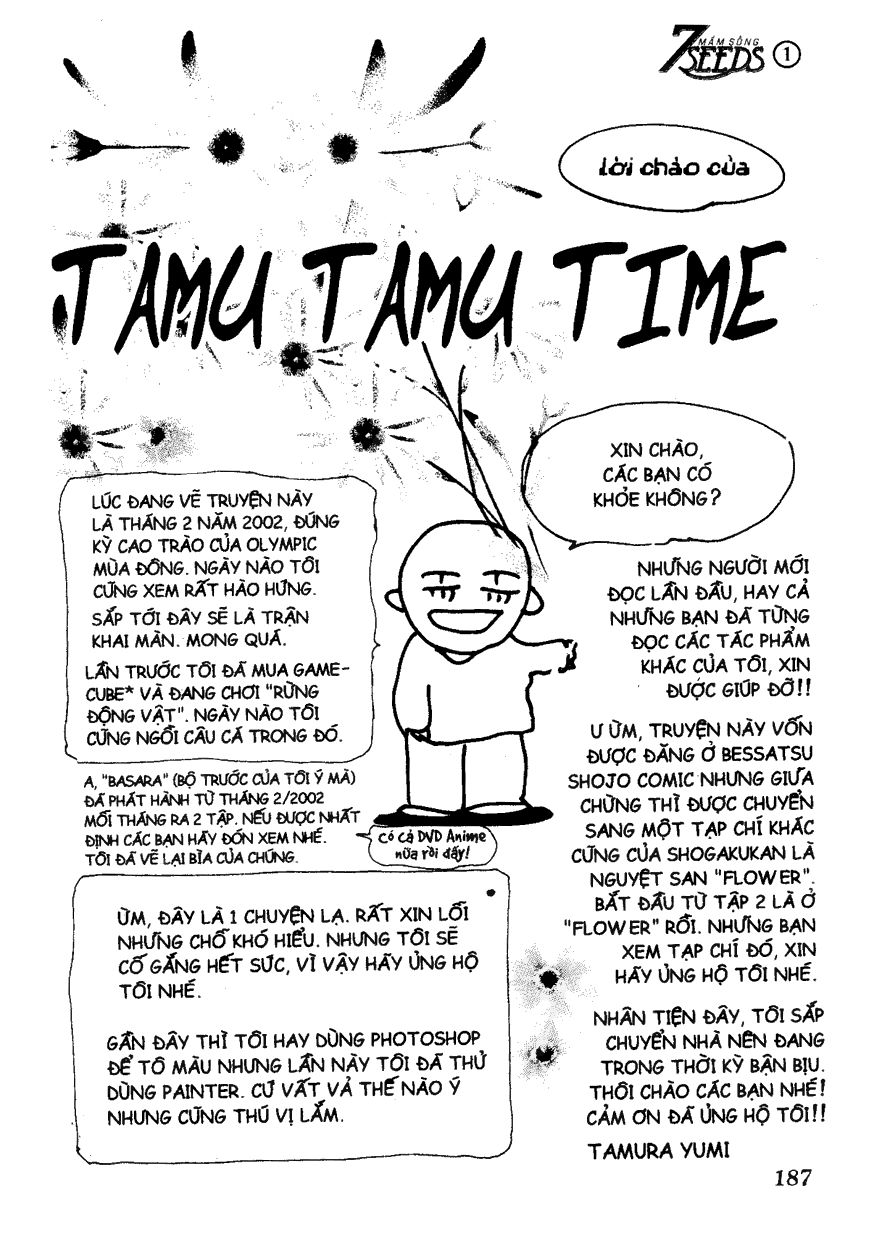 7SEEDS
MẦM SỐNG
1
lời chào của
TAMU TAMU TIME
XIN CHÀO,
CÁC BẠN CÓ
KHỎE KHÔNG?
LÚC ĐANG VẼ TRUYỆN NÀY
LÀ THÁNG 2 NĂM 2002, ĐÚNG
KỲ CAO TRÀO CỦA OLYMPIC
MÙA ĐÔNG. NGÀY NÀO TÔI
CŨNG XEM RẤT HÀO HỨNG.
SẮP TỚI ĐÂY SẼ LÀ TRẬN
KHAI MÀN. MONG QUÁ.
LẦN TRƯỚC TÔI ĐÃ MUA GAME-
CUBE* VÀ ĐANG CHƠI "RỪNG
ĐỘNG VẬT". NGÀY NÀO TÔI
CŨNG NGỒI CÂU CÁ TRONG ĐÓ.
A, "BASARA" (BỘ TRƯỚC CỦA TÔI Ý MÀ)
ĐÃ PHÁT HÀNH TỪ THÁNG 2/2002
MỖI THÁNG RA 2 TẬP. NẾU ĐƯỢC NHẤT
ĐỊNH CÁC BẠN HÃY ĐÓN XEM NHÉ.
TÔI ĐÃ VẼ LẠI BÌA CỦA CHÚNG.
Có cả DVD Anime
nữa rồi đấy!
ỪM, ĐÂY LÀ 1 CHUYỆN LẠ. RẤT XIN LỖI
NHỮNG CHỖ KHÓ HIỂU. NHƯNG TÔI SẼ
CỐ GẮNG HẾT SỨC, VÌ VẬY HÃY ỦNG HỘ
TÔI NHÉ.
GẦN ĐÂY THÌ TÔI HAY DÙNG PHOTOSHOP
ĐỂ TÔ MÀU NHƯNG LẦN NÀY TÔI ĐÃ THỬ
DÙNG PAINTER. CỨ VẤT VẢ THẾ NÀO Ý
NHƯNG CŨNG THÚ VỊ LẮM.
NHỮNG NGƯỜI MỚI
ĐỌC LẦN ĐẦU, HAY CẢ
NHỮNG BẠN ĐÃ TỪNG
ĐỌC CÁC TÁC PHẨM
KHÁC CỦA TÔI, XIN
ĐƯỢC GIÚP ĐỠ!!
Ư ỪM, TRUYỆN NÀY VỐN
ĐƯỢC ĐĂNG Ở BESSATSU
SHOJO COMIC NHƯNG GIỮA
CHỪNG THÌ ĐƯỢC CHUYỂN
SANG MỘT TẠP CHÍ KHÁC
CŨNG CỦA SHOGAKUKAN LÀ
NGUYỆT SAN "FLOWER".
BẮT ĐẦU TỪ TẬP 2 LÀ Ở
"FLOWER" RỒI. NHỮNG BẠN
XEM TẠP CHÍ ĐÓ, XIN
HÃY ỦNG HỘ TÔI NHÉ.
NHÂN TIỆN ĐÂY, TÔI SẮP
CHUYỂN NHÀ NÊN ĐANG
TRONG THỜI KỲ BẬN BỊU.
THÔI CHÀO CÁC BẠN NHÉ!
CẢM ƠN ĐÃ ỦNG HỘ TÔI!!
TAMURA YUMI
187